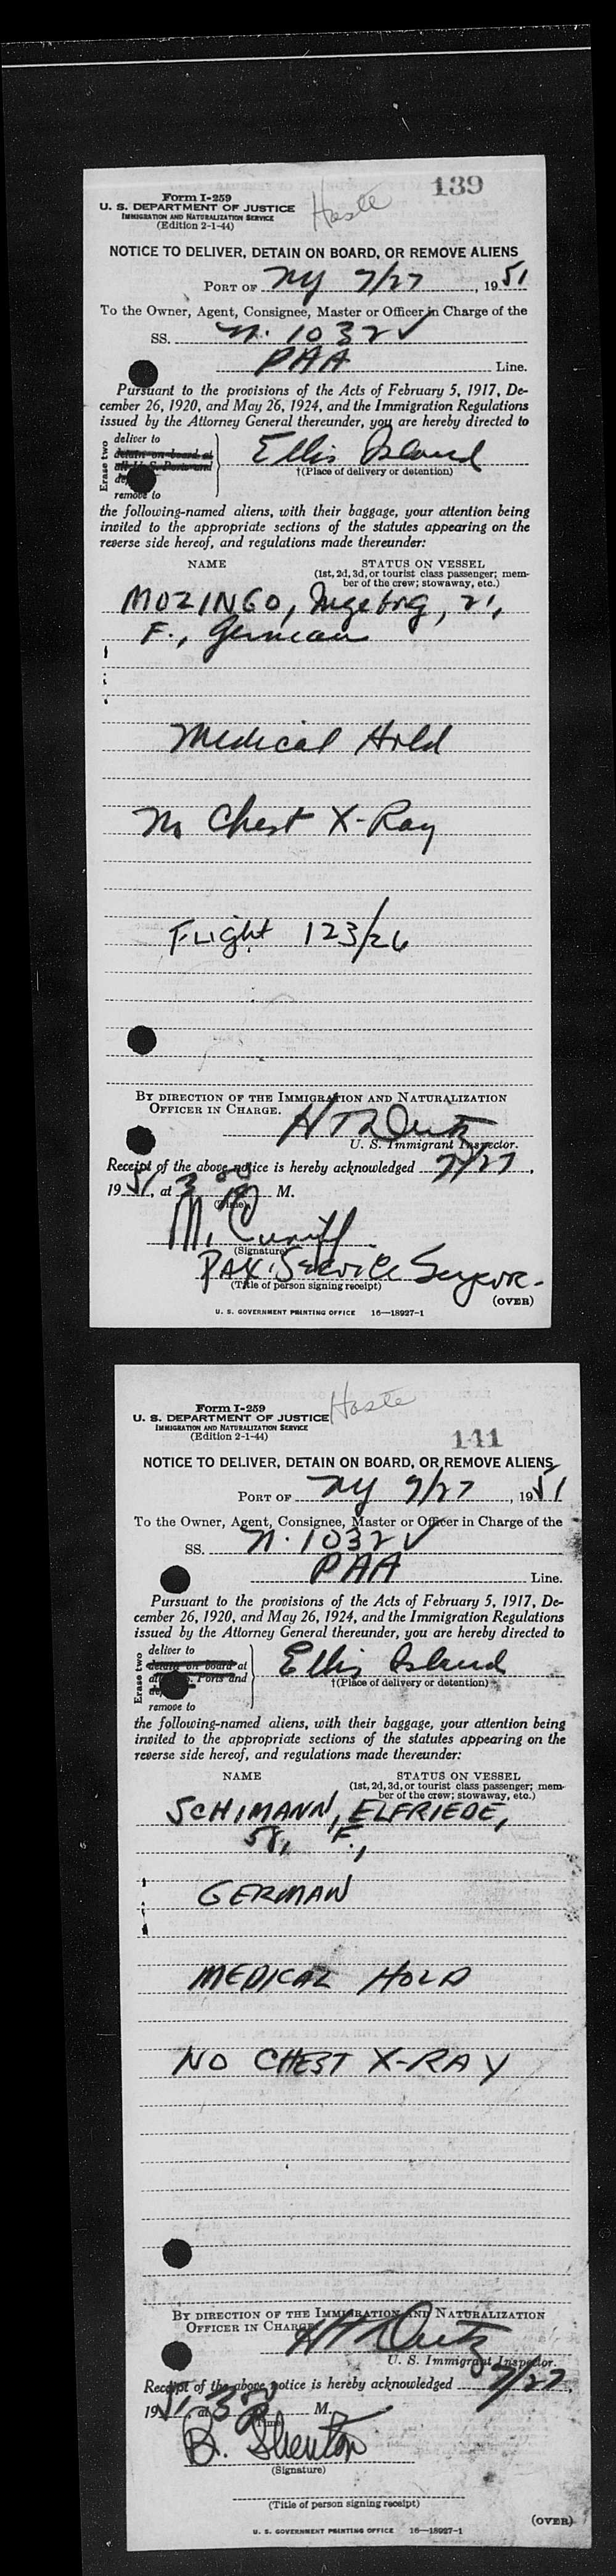 139
Form I-259
Haste
U. S. DEPARTMENT OF JUSTICE
IMMIGRATION AND NATURALIZATION SERVICE
(Edition 2-1-44)
NOTICE TO DELIVER, DETAIN ON BOARD, OR REMOVE ALIENS
PORT OF NY 7/27, 1951
To the Owner, Agent, Consignee, Master or Officer in Charge of the
SS. N. 1032V
PAA Line.
Pursuant to the provisions of the Acts of February 5, 1917, De-
cember 26, 1920, and May 26, 1924, and the Immigration Regulations
issued by the Attorney General thereunder, you are hereby directed to
Erase two
deliver to
detain on board at
all U. S. Ports and
remove to
Ellis Island
†(Place of delivery or detention)
the following-named aliens, with their baggage, your attention being
invited to the appropriate sections of the statutes appearing on the
reverse side hereof, and regulations made thereunder:
NAME STATUS ON VESSEL
(1st, 2d, 3d, or tourist class passenger; mem-
ber of the crew; stowaway, etc.)
MOZINGO, Ingeborg, 21,
F., German
Medical Hold
No Chest X-Ray
Flight 123/26
BY DIRECTION OF THE IMMIGRATION AND NATURALIZATION
OFFICER IN CHARGE.
U. S. Immigrant Inspector.
Receipt of the above notice is hereby acknowledged 7/27,
1951, at 3 00 P M.
(Time)
(Signature)
PAX. Service
(Title of person signing receipt)
(OVER)
U. S. GOVERNMENT PRINTING OFFICE 16—18927-1
Form I-259
Haste
U. S. DEPARTMENT OF JUSTICE
IMMIGRATION AND NATURALIZATION SERVICE
(Edition 2-1-44)
141
NOTICE TO DELIVER, DETAIN ON BOARD, OR REMOVE ALIENS
PORT OF NY 7/27, 1951
To the Owner, Agent, Consignee, Master or Officer in Charge of the
SS. N. 1032V
PAA Line.
Pursuant to the provisions of the Acts of February 5, 1917, De-
cember 26, 1920, and May 26, 1924, and the Immigration Regulations
issued by the Attorney General thereunder, you are hereby directed to
Erase two
deliver to
detain on board at
Ports and
remove to
Ellis Island
†(Place of delivery or detention)
the following-named aliens, with their baggage, your attention being
invited to the appropriate sections of the statutes appearing on the
reverse side hereof, and regulations made thereunder:
NAME STATUS ON VESSEL
(1st, 2d, 3d, or tourist class passenger; mem-
ber of the crew; stowaway, etc.)
SCHIMANN, ELFRIEDE,
58, F.,
GERMAN
MEDICAL HOLD
NO CHEST X-RAY
BY DIRECTION OF THE IMMIGRATION AND NATURALIZATION
OFFICER IN CHARGE
U. S. Immigrant Inspector.
Receipt of the above notice is hereby acknowledged 7/27,
1951, at 3 00 P M.
(Time)
B. Shenton
(Signature)
(Title of person signing receipt)
(OVER)
U. S. GOVERNMENT PRINTING OFFICE 16—18927-1